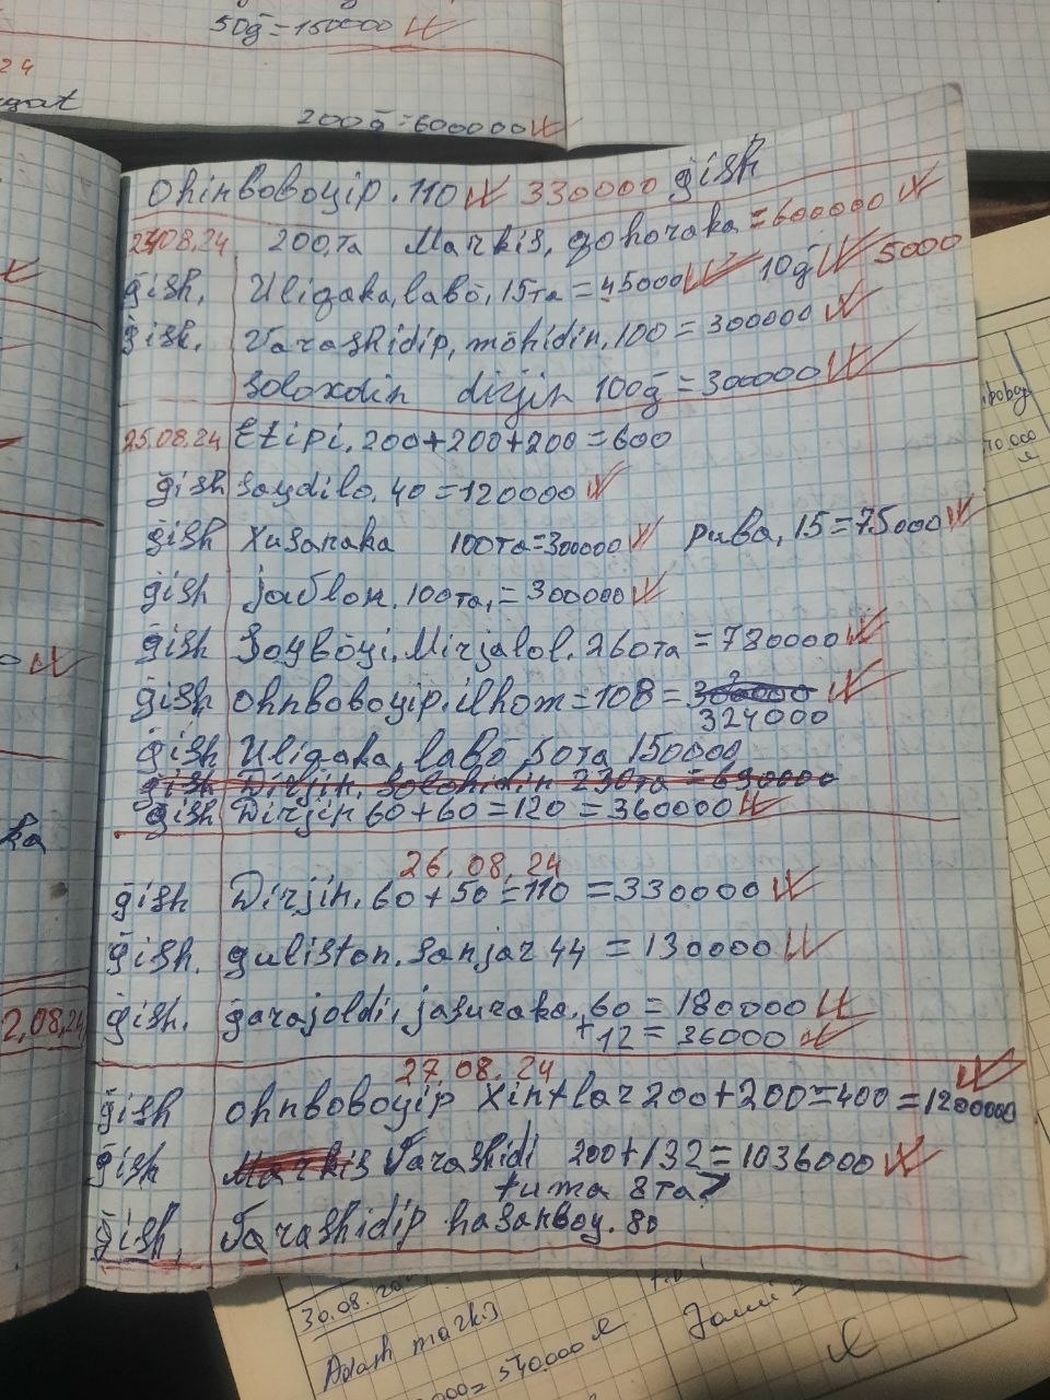 50g̃=150000
24
200g̃=600000
ohinboboyip.110 330000 g̃ish
24.08.24 200,та Markis, gohoraka=600000
g̃ish. Uligaka, labõ, 15та=45000 10g̃ 5000
g̃ish. Varashidip, mõhidin, 100=300000
Soloxdin dirjin 100g̃=300000
25.08.24 Etipi, 200+200+200=600
g̃ish Saydilo, 40=120000
g̃ish Xusanaka 100та=300000 рива, 15=75000
g̃ish jablon. 100та,=300000
g̃ish Soybõyi, Mirjalol. 260та=780000
g̃ish ohnboboyip.ilhom=108=300000
324000
g̃ish Uligaka, labõ 50та 150000
g̃ish Dirjin, Solohidin 230та=690000
g̃ish Dirjin 60+60=120=360000
26.08.24
g̃ish Dirjin, 60+50=110=330000
g̃ish. guliston. Sanjar 44=130000
g̃ish. garajoldi, jasuraka, 60=180000
+12=36000
2,08,24
27.08.24
g̃ish ohnboboyip Xintlar 200+200=400=1200000
g̃ish Markis Varashidi 200+132=1036000
tuma 8та
g̃ish, Varashidip hasanboy. 80
30.08.
Adash markis
=540.000